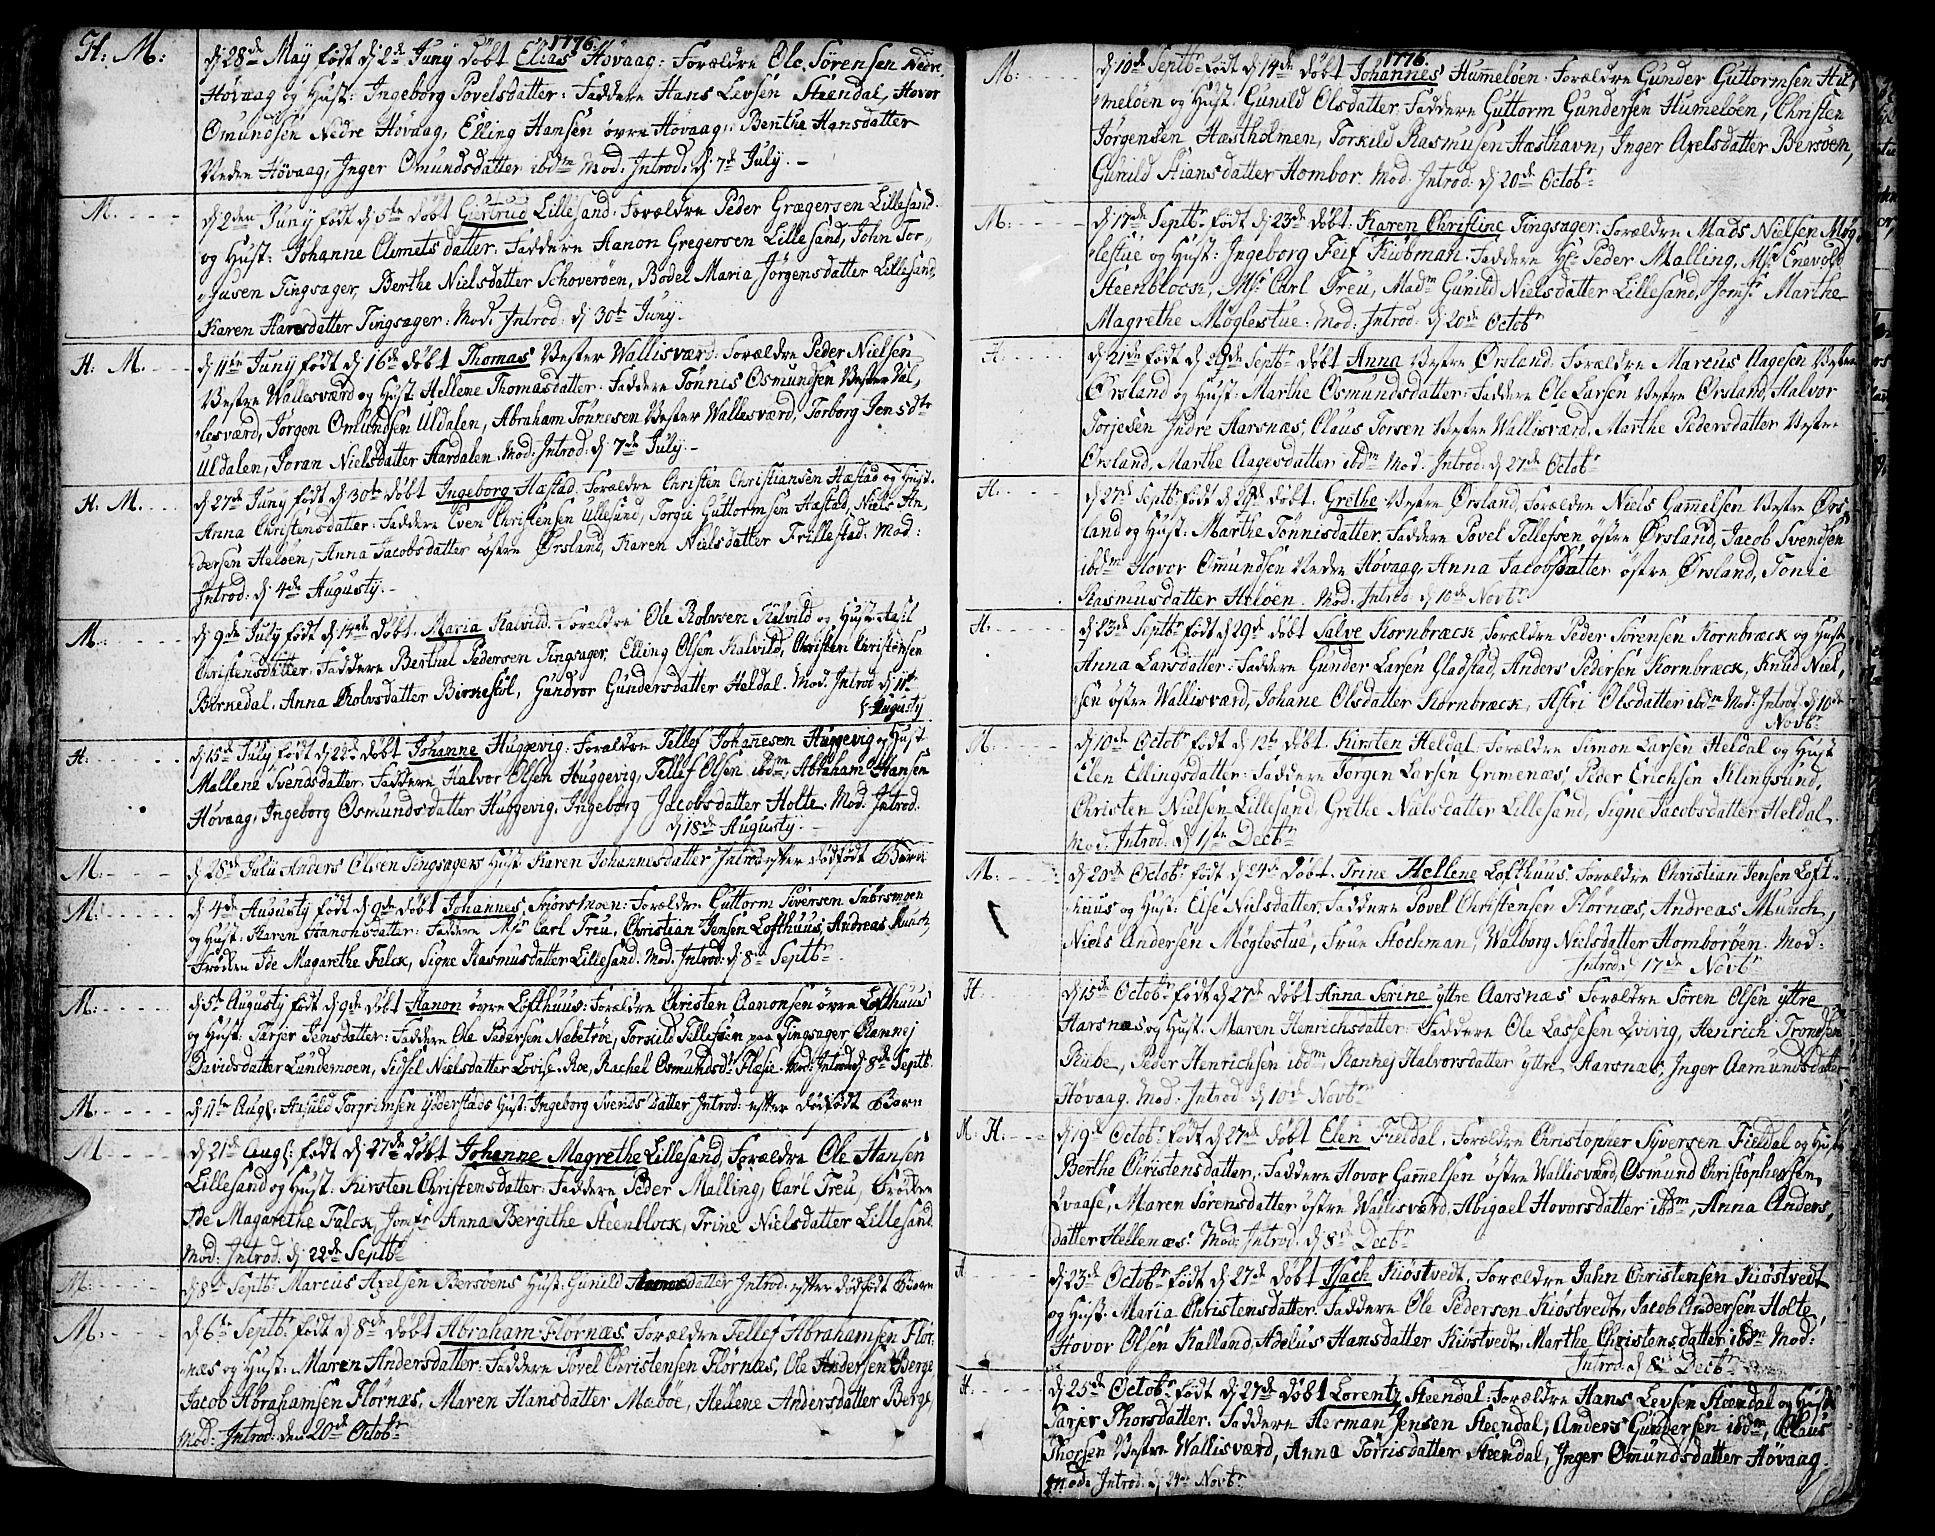 1776.
H: M: d 28de May født d 2de Juny døbt Elias Høvaag: Forældre Ole Sørensen Nedre
Høvaag og Hust: Ingeborg Povelsdatter: Faddere Hans Levsen Steendal, Hovor
Omundsen Nedre Høvaag, Elling Hansen øvre Høvaag, Benthe Hansdatter
Neden Høvaag, Inger Omundsdatter ibdm Mod: Introd: d: 7de July.
M. d 2den Juny født d 5te døbt Gurtrud Lillesand. Forældre Peder Grægersen Lillesand
og Hust: Johanne Clemetsdatter: Faddere Aanon Gregersen Lillesand, John Tor-
-jusen Tingsager, Berthe Nielsdatter Schoverøen, Bodel Maria Jørgensdatter Lillesand,
Karen Haresdatter Tingsager: Mod: Introd: d 30te Juny.
H: M. d 11te Juny født d 16de døbt Thomas Vestre Wallisværd: Forældre Peder Nielsen
Vestre Wallesværd og Hust: Hellene Thomasdatter: Faddere Tønnis Osmundsen Vestre Val,
-lesværd, Jørgen Omundsen Uldalen, Abraham Tønnesen Vestre Wallesværd, Torborg Jensdtr
Uldalen, Joran Nielsdatter Hardalen. Mod: Introd: d 7de July.
H: M. d 27de Juny født d 30te døbt Ingeborg Hæstad. Forældre Christen Christiansen Hæstad og Hust.
Anna Christensdatter: Faddere Even Christensen Ullesund, Torgie Guttormsen Hæstad, Niels An,
-dersen Heløen, Anna Jacobsdatter østre Ørsland, Karen Nielsdatter Frillestad. Mod:
Introd: d 4de Augusty.
M: d 9de July født d 14de døbt. Maria Kalvild. Forældre Ole Rolvsen Kalvild og Hust: Assil
Christensdatter: Faddere Berthel Pedersen Tingsager, Elling Olsen Kalvild, Christen Christensen
Birkedal. Anna Rolvsdatter Birkestøl, Gundvor Gundersdatter Heldal. Mod: Introd d 11te
Augusty
H: d 15de July født d 22de døbt Johanne Huggevig: Forældre Tellef Johanesen Huggevig og Hust
Mallene Svendsdatter. Faddere Halvor Olsen Huggevig, Tellef Olsen ibdm, Abraham Hansen
Høvaag, Ingeborg Osmundsdatter Huggevig, Ingeborg Jacobsdatter Holte. Mod: Introd.
d 18de Augusty.
M: d 28de Julii Anders Olsen Tingsagers Hust: Karen Johannesdatter Introd efter dødfødt Barn
M: d 4de Augusty født d 9de døbt Johannes Snørsmoen: Forældre Guttorm Siversen Snørsmoen
og Hust: Karen Aanonsdatter: Faddere Msr Carl Treu, Christian Jensen Lofthuus, Andreas Munch,
Frøiken Ide Magarethe Falck, Signe Rasmusdatter Lillesand. Mod. Introd: d 8de Septbr.
M: d 5te Augusty født d 9de døbt Aanon øvre Lofthuus: Forældre Christen Aanonsen øvre Lofthuus
og Hust: Tarjer Jensdatter: Faddere Ole Pedersen Næbetrøe, Torkild Tellefsen paa Tingsager, Rannej
Davidsdatter Lundemoen, Sidsel Nielsdatter Lovise-Roe, Rachel Osmundsdr Flæsie. Mod: Introd d 8de Septb:
M: d 11te Aug: Asuld Torgrimsen Ydderstads Hust: Ingeborg Svendsdatter Introd: efter dødfødt Barn
M: d 21de Aug: født d 27de døbt Johanne Magrethe Lillesand, Forældre Ole Hansen
Lillesand og Hust: Kirsten Christensdatter: Faddere Peder Malling, Carl Treu, Frøiken
Ide Magarethe Falck, Jomfr Anna Bergithe Steenblock, Trine Nielsdatter Lillesand.
Mod: Introd: d 22de Septbr
M: d 8de Septbr Marcus Axelsen Bersøens Hust: Gunild datter Introd: efter dødfødt Barn
M: d 6te Septbr født d 8de døbt Abraham Flørnæs. Forældre Tellef Abrahamsen Flør,
-næs og Hust: Maren Andersdatter: Faddere Povel Christensen Flørnæs, Ole Andersen Berge
Jacob Abrahamsen Flørnæs, Maren Hansdatter Mæbøe, Hellene Andersdatter Berge,
Mod: Introd: den 20de Octobr
1776.
M: d 10de Septbr født d 14de døbt Johannes Hummeløen: Forældre Gunder Guttormsen Hu,
-meløen og Hust: Gunild Olsdatter: Faddere Guttorm Gundersen Humeløen, Christen
Jørgensen, Hæstholmen, Torkild Rasmusen Hæsthavn, Inger Axelsdatter Bersøen,
Gunild Stiansdatter Hombor. Mod: Introd: d 20de Octobr
M: d 17de Septbr født d 23de døbt: Karen Christine Tingsager: Forældre Mads Nielsen Møg,
-lestue og Hust: Ingeborg Feif Kiøbman: Faddere Hr Peder Malling, Msr Enevold
Steenblock, Msr Carl Treu, Madm Gunild Nielsdatter Lillesand, Jomfr Marthe
Magrethe Møglestue: Mod: Introd: d 20de Octobr
H: d 21de født d 29de Septbr døbt Anna Vestre Ørsland: Forældre Marcus Aagesen Vestre
Ørsland og Hust: Marthe Osmundsdatter: Faddere Ole Larsen Vestre Ørsland, Halvor
Torjesen Indre Aarsnæs, Claus Torsen Vestre Wallisværd, Marthe Pedersdatter Vestre
Ørsland, Marthe Aagesdatter ibdm Mod: Introd: d 27de Octobr
H: d 27de Septbr født d 29de døbt. Grethe Vestre Ørsland, Forældre Niels Gamelsen Vestre Ørs,
land og Hust: Marthe Tønnisdatter. Faddere Povel Tellefsen østre Ørsland, Jacob Svendsen
ibdm Hovor Omundsen Nedre Høvaag, Anna Jacobsdatter østre Ørsland, Tonie
Rasmusdatter Heløen. Mod: Introd d 10de Novbr
H: d 23de Septbr født d 29de døbt Salve Kornbræck, Forældre Peder Sørensen Kornbræck og Hust
Anna Larsdatter: Faddere Gunder Larsen Gladstad, Anders Pedersen Kornbræck, Knud Niel,
-sen østre Wallisværd, Johane Olsdatter Kornbræck, Astri Olsdatter ibdm Mod: Introd. d 10de
Novbr
M: d 10de Octobr født d 12te døbt. Kirsten Heldal: Forældre Simon Larsen Heldal og Hust
Elen Ellingsdatter: Faddere Jørgen Larsen Grimenæs, Peder Erichsen Klingsund,
Christen Nielsen Lillesand, Grethe Nielsdatter Lillesand, Signe Jacobsdatter Heldal.
Mod: Introd: d 1ste Decbr
M: d 20de Octobr født d 24de døbt. Trine Hellene Lofthuus: Forældre Christian Jensen Loft-
huus og Hust: Else Nielsdatter, Faddere Povel Christensen Flørnæs, Andreas Munch,
Niels Andersen Møglestue, Frue Stockman, Walborg Nielsdatter Homborøen. Mod:
Introd d 17de Novbr
H. d 15de Octobr født d 27de døbt Anna Serine yttre Aarsnæs Forældre Søren Olsen yttre
Aarsnæs og Hust: Maren Henrichsdatter: Faddere Ole Lassesen Qvivig, Henrich Trondsen
Ribe, Peder Henrichsen ibdm Rannej Halvorsdatter yttre Aarsnæs, Inger Aamundsdatter
Høvaag. Mod: Introd d 10de Novbr
M: H: d 19de Octobr født d 27de døbt Elen Fieldal, Forældre Christopher Syversen Fieldal og Hust
Berthe Christensdatter, Faddere Hovor Gamelsen østre Wallisværd, Osmund Christophersen
Qvaase, Maren Sørensdatter østre Wallisværd, Abigael Hovorsdatter ibdm, Anna Anders,
datter Hellenæs: Mod: Introd. d 8de Decbr
H d 23de Octobr født d 27de døbt Isach Kiøstvedt, Forældre Jahn Christensen Kiøstvedt
og Hust: Maria Christensdatter. Faddere Ole Pedersen Kiøstvedt, Jacob Andersen Holte,
Hovor Olsen Kalland, Adelus Hansdatter Kiøstvedt, Marthe Christensdatter ibdm Mod:
Introd: d 8de Decbr
H. d 25de Octobr født d 27de døbt Lorentz Steendal: Forældre Hans Levsen Steendal og Hust
Tarjer Thorsdatter: Faddere Herman Jensen Steendal, Anders Gundersen ibdm, Claus
Thorsen Vestre Wallisværd, Anna Torrisdatter Steendal, Inger Omundsdatter Høvaag.
Mod: Introd: d 24de Novbr